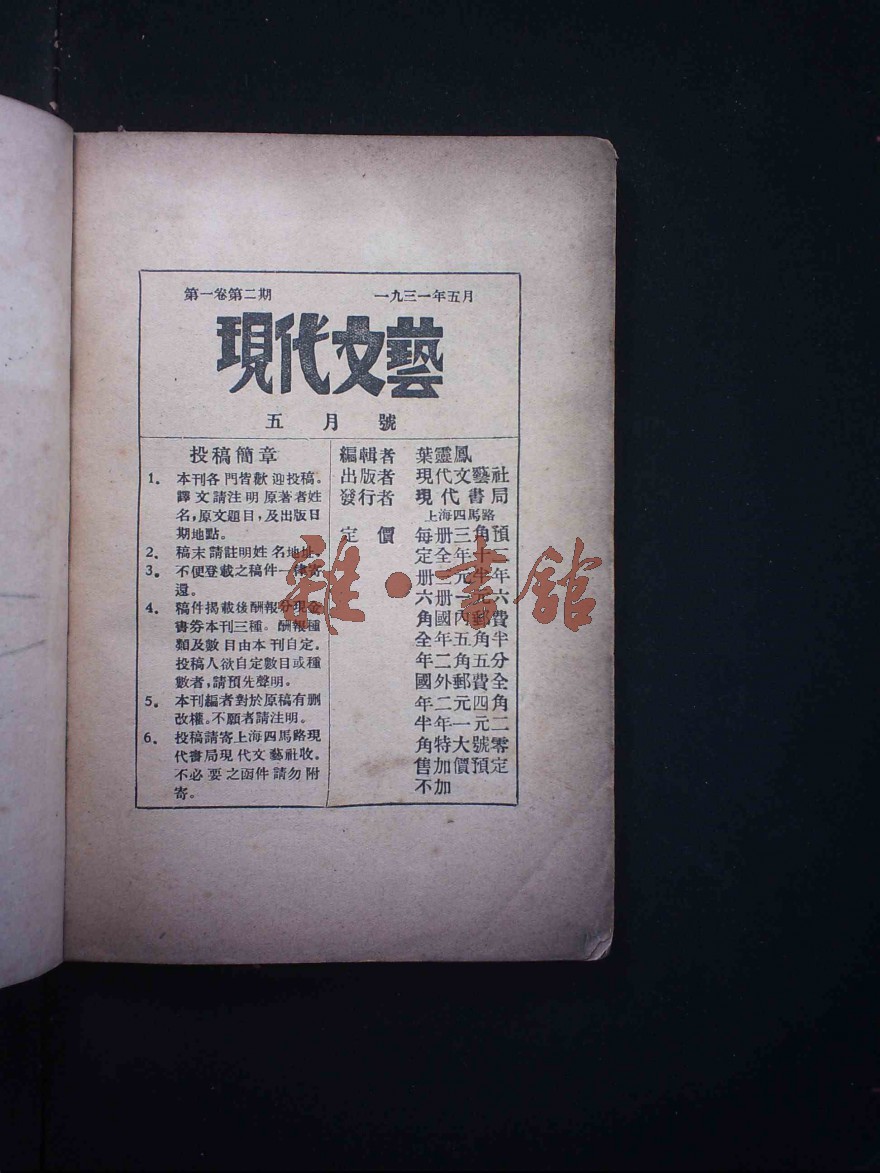 第一卷第二期 一九三一年五月
現代文藝
五月號
投稿簡章
1. 本刊各門皆歡迎投稿。
譯文請注明原著者姓
名，原文題目，及出版日
期地點。
2. 稿末請註明姓名地址。
3. 不便登載之稿件一律寄
還。
4. 稿件揭載後酬報分現金
書券本刊三種。酬報種
類及數目由本刊自定。
投稿人欲自定數目或種
數者，請預先聲明。
5. 本刊編者對於原稿有删
改權。不願者請注明。
6. 投稿請寄上海四馬路現
代書局現代文藝社收。
不必要之函件請勿附
寄。
編輯者 葉靈鳳
出版者 現代文藝社
發行者 現代書局
上海四馬路
定價 每册三角預
定全年十二
册三元半年
六册一元六
角國內郵費
全年五角半
年二角五分
國外郵費全
年二元四角
半年一元二
角特大號零
售加價預定
不加
雜·書館